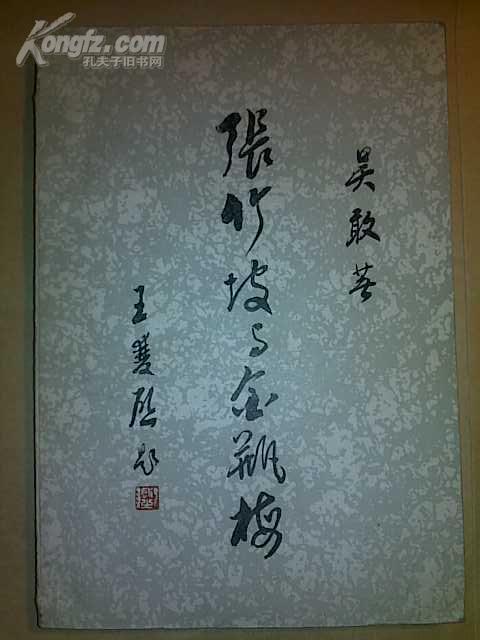 Kongfz.com
孔夫子旧书网
吴敢著
張竹坡与金瓶梅
王雙啟題